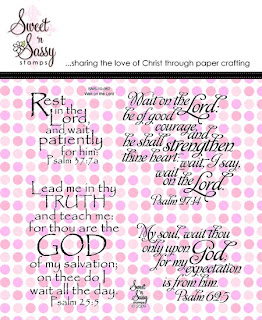 Sweet 'n Sassy
STAMPS
...sharing the love of Christ through paper crafting
Wait on the Lord
Rest
in the
Lord,
and wait
patiently
for him:
Psalm 37:7a
Wait on the Lord:
be of good
courage,
and
he shall strengthen
thine heart:
wait, I say,
wait
on the Lord.
Psalm 27:14
Lead me in thy
TRUTH
and teach me:
for thou are the
GOD
of my salvation;
on thee do I
wait all the day.
Psalm 25:5
My soul, wait thou
only upon
my God,
for my
expectation
is from him.
Psalm 62:5
Sweet 'n Sassy